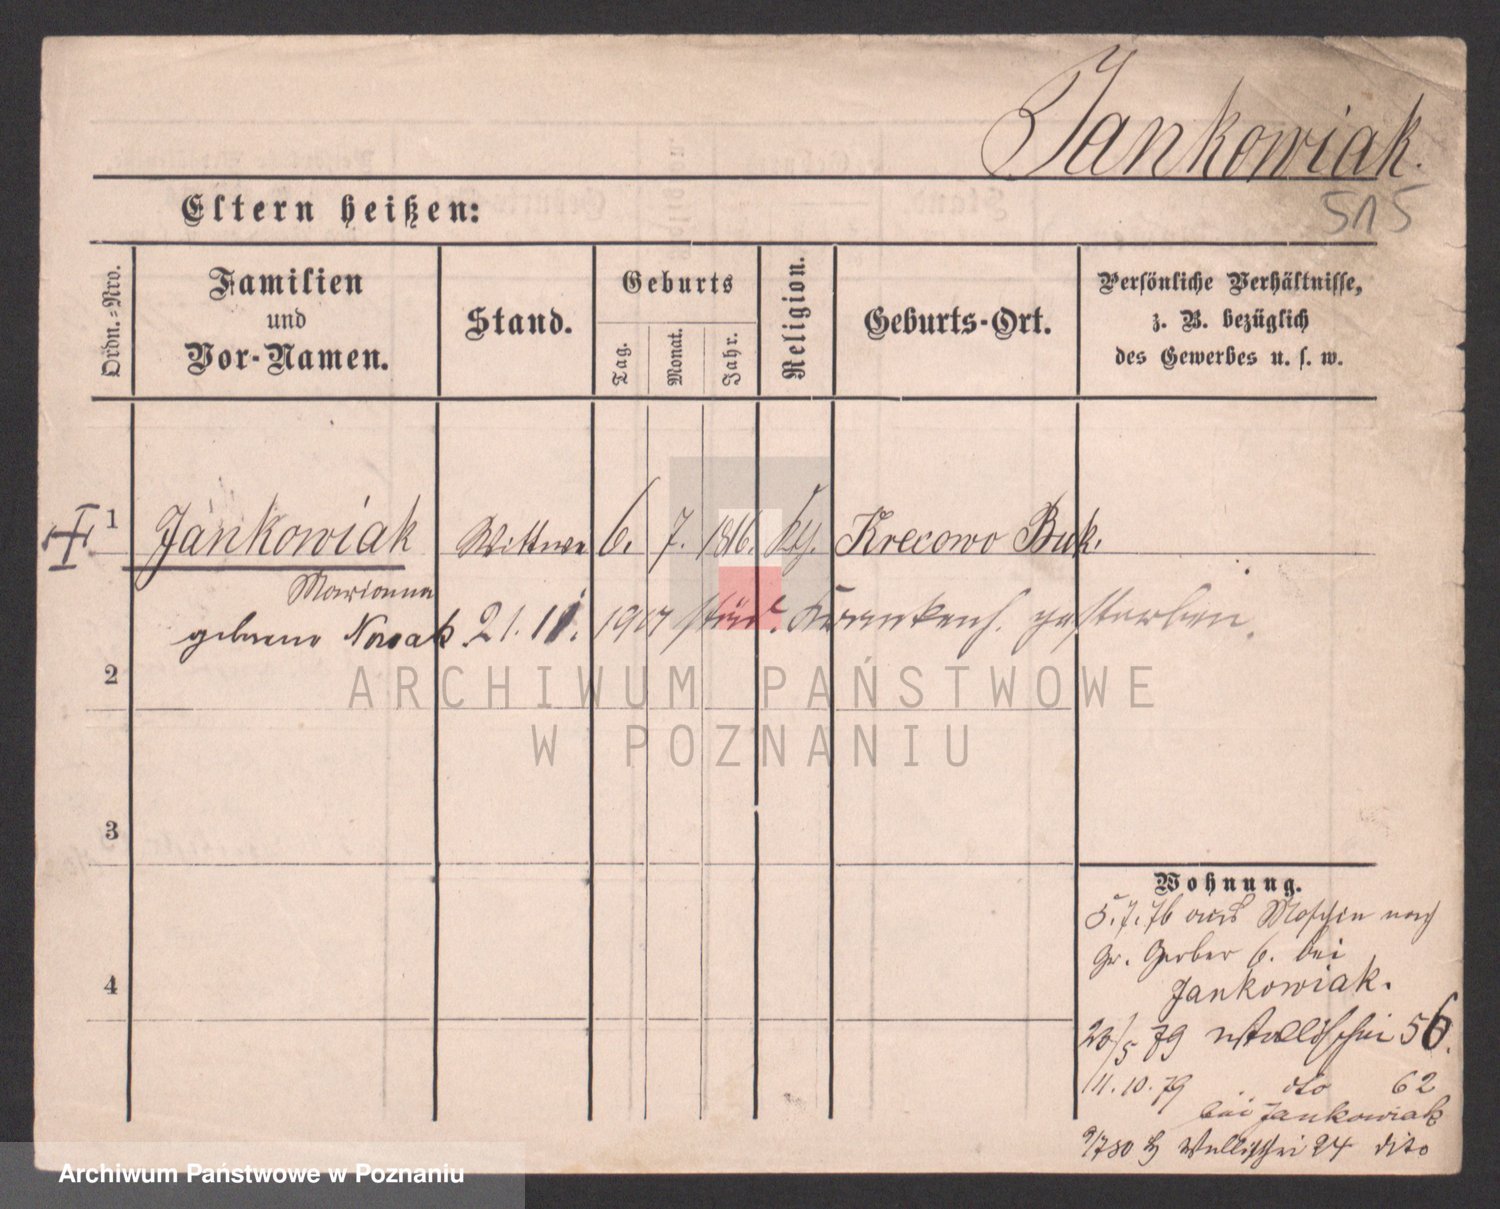 Jankowiak.
515
Eltern heißen:
Ordn.-Nro.
Familien
und
Vor-Namen.
Stand.
Geburts
Tag.
Monat.
Jahr.
Religion.
Geburts-Ort.
Persönliche Verhältnisse,
z. B. bezüglich
des Gewerbes u. s. w.
1 Jankowiak Wittwe 6. 7. 1816. Krecowo Buk.
Marianna
geborene Nowak. 21. 11. 1907 städt. Krankenh. gestorben.
2
ARCHIWUM PAŃSTWOWE
W POZNANIU
3
4
Wohnung.
5.7.76 aus Moschin nach
Gr. Gerber 6. bei
Jankowiak.
20/5 79 Wallischei 56.
11.10.79 dto 62
bei Jankowiak
9/7 80 Wallischei 24 dito
Archiwum Państwowe w Poznaniu